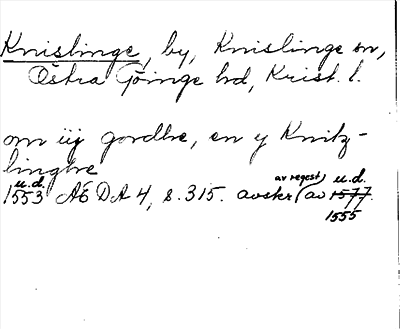 Knislinge, by, Knislinge sn,
Östra Göinge hd, Krist. l.
om iij gordhe, en y Knitz-
linghe
u.d. av regest u.d.
1553 ÆDA 4, s. 315. avskr (av 1577.
1555